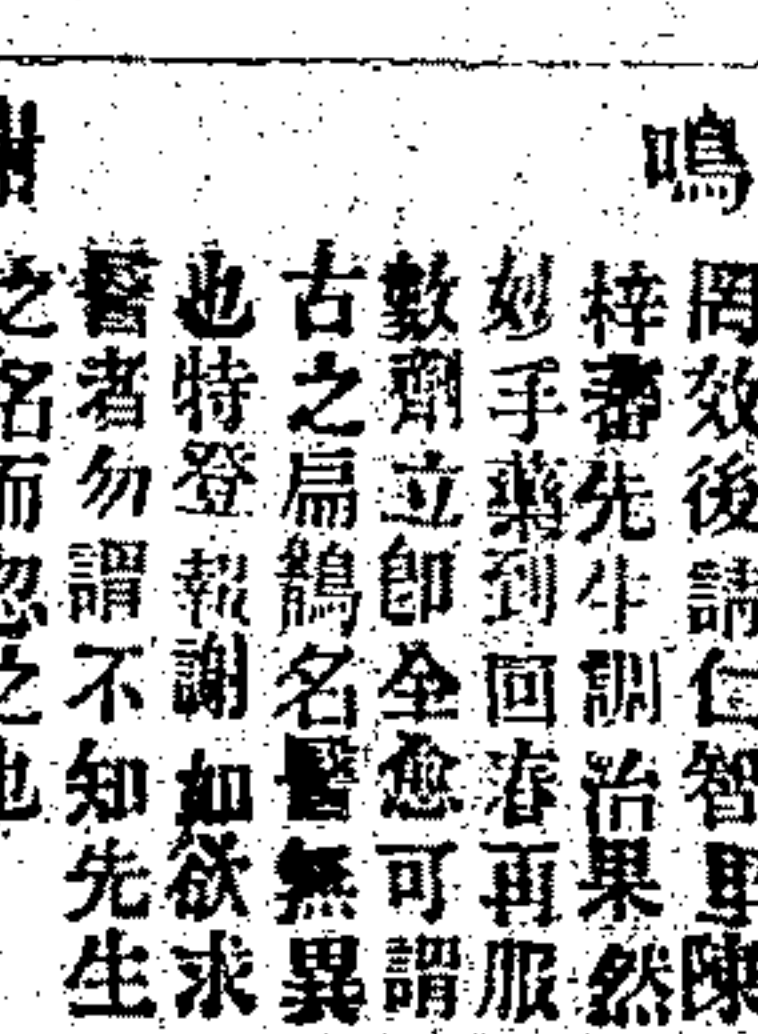 鳴
罔效後請仁智里陳
梓壽先生調治果然
妙手藥到回春再服
數劑立即全愈可謂
古之扁鵲名醫無異
也特登報謝如欲求
醫者勿謂不知先生
之名而忽之也
謝